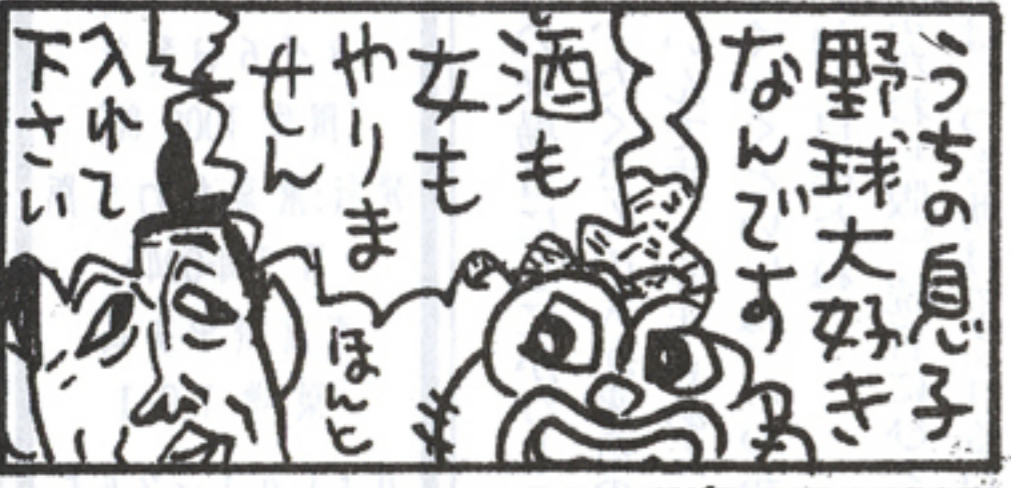 うちの息子
野球大好き
なんです
酒も
女も
やりま
せん
ほんと
入れて
下さい